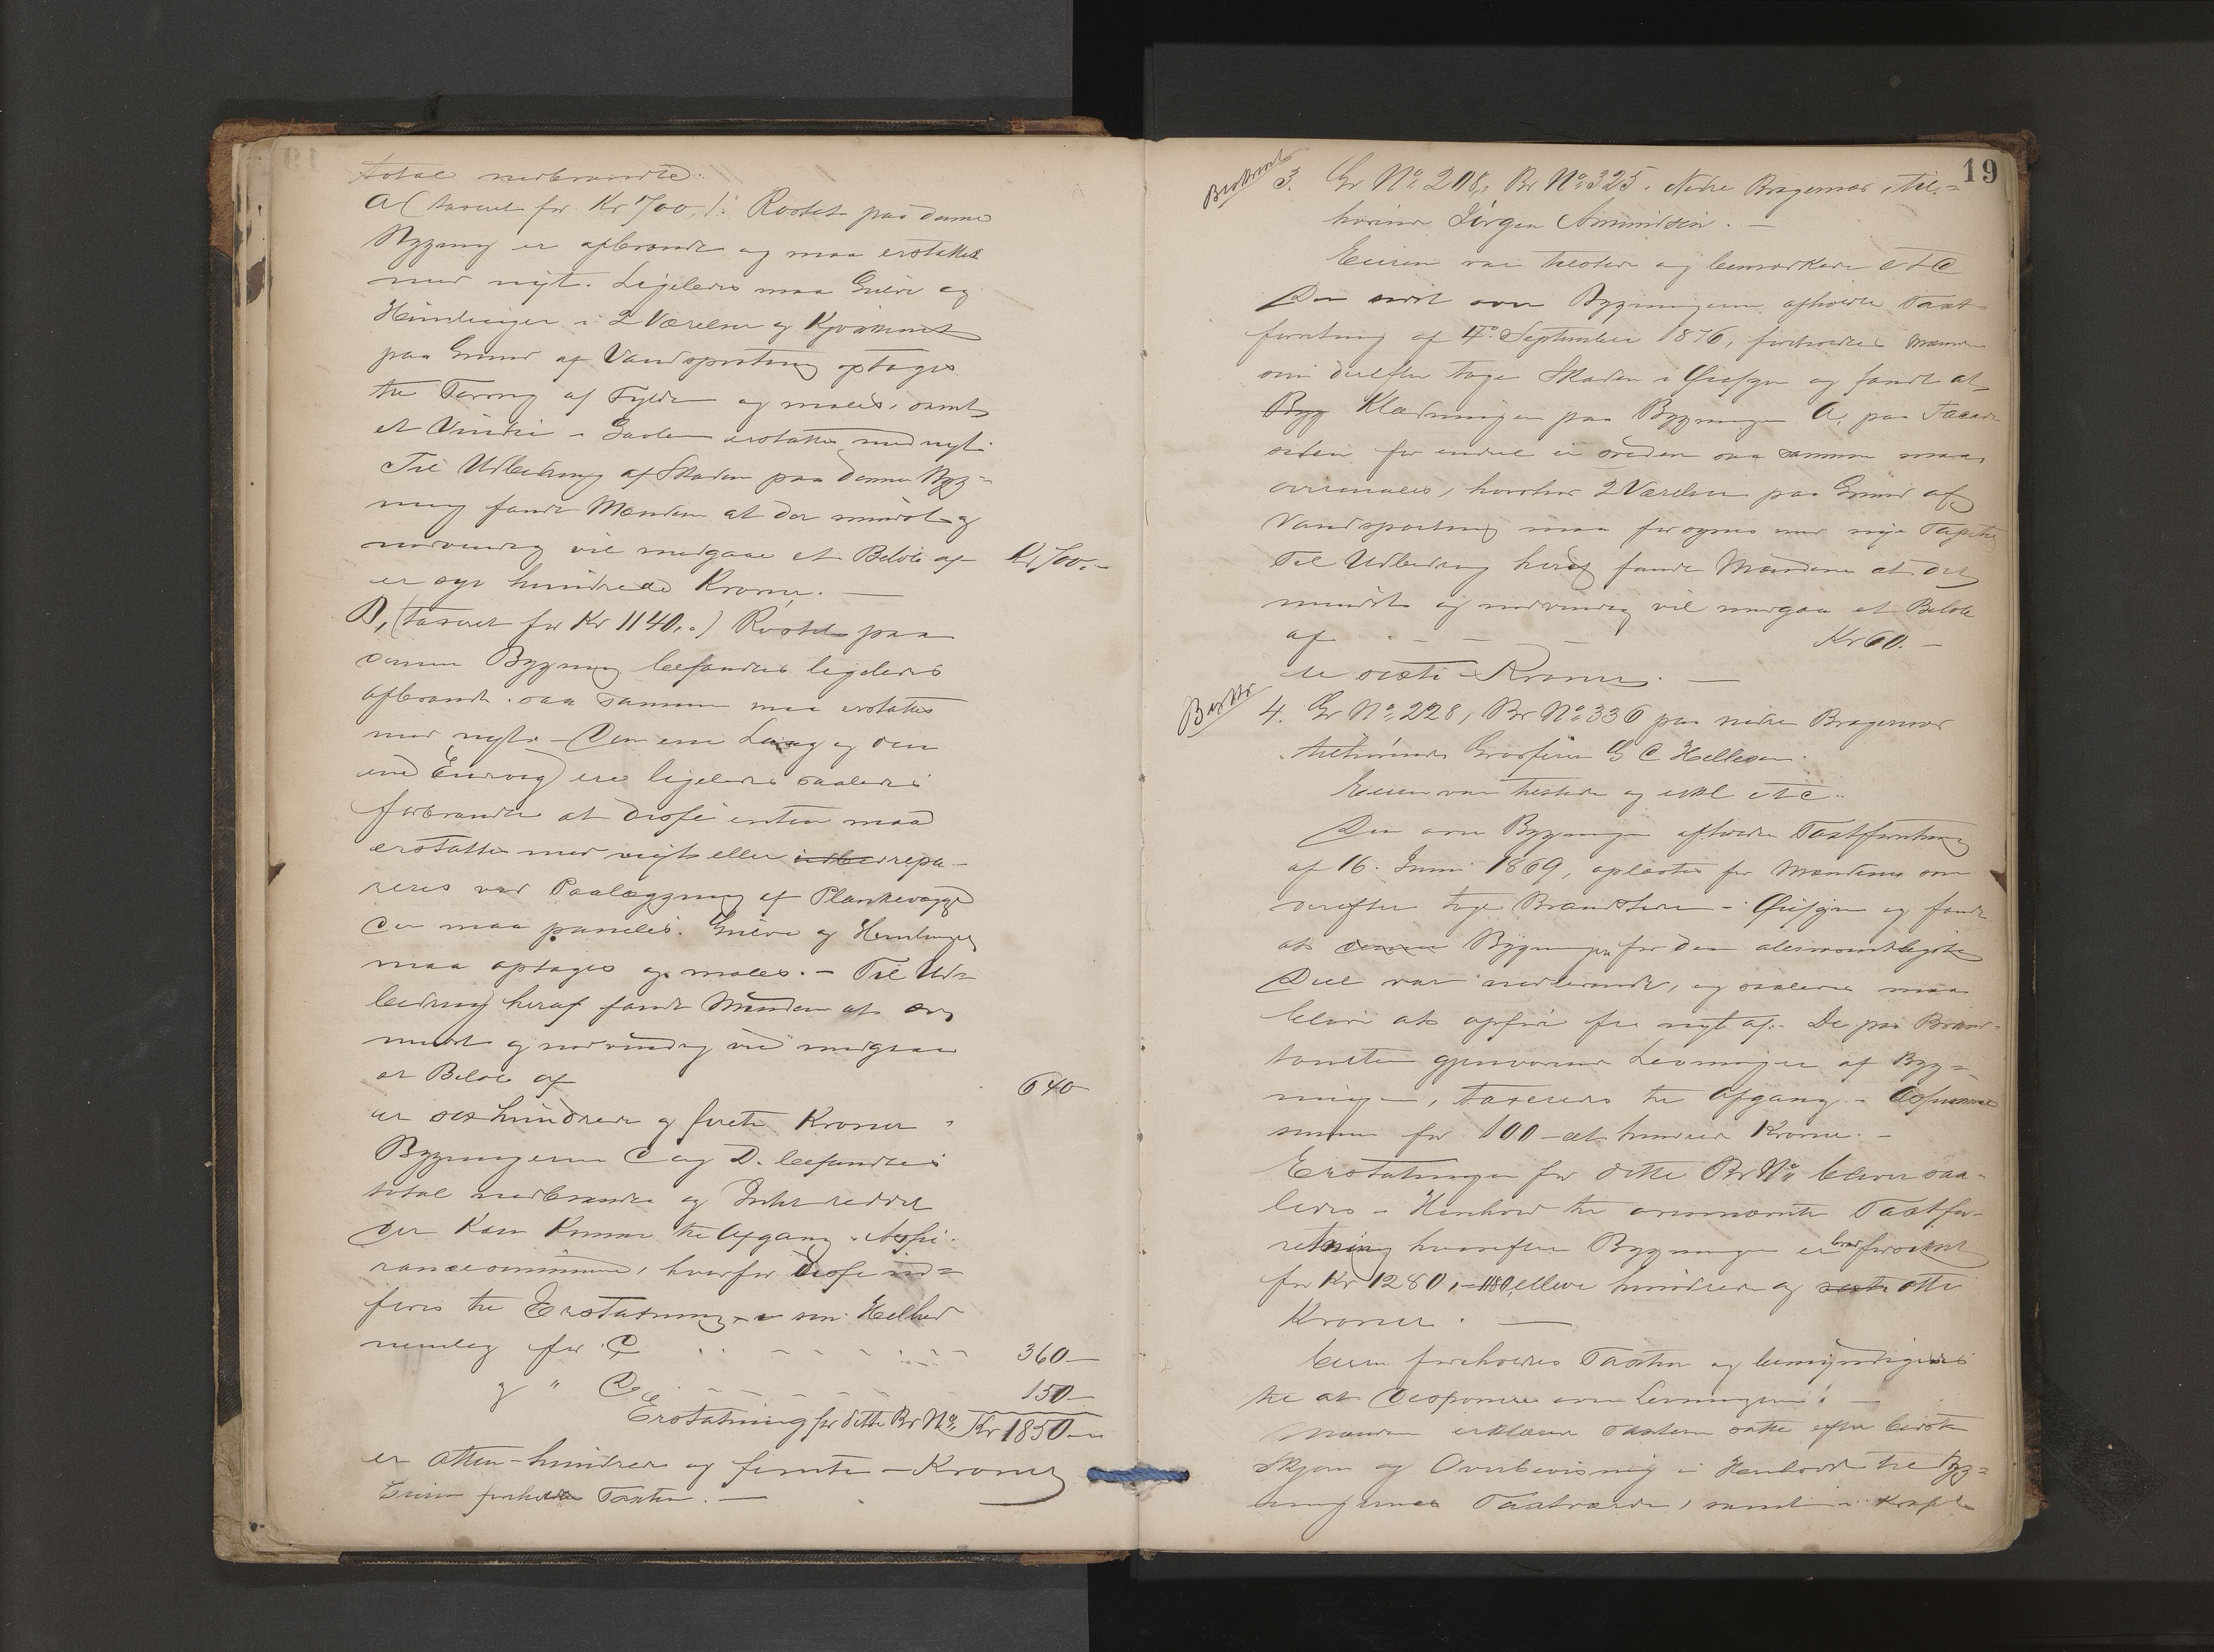 total nedbrændte:
A (taxeret for Kr 1700,). Rostet paa denne
Bygning er afbrændt og maa erstattes
med nyt. Ligeledes maa Gulve og
Himlinger i 2 Værelser og Kjøkkenet
paa Grund af Vandsprøitning optages
til Tørring af Fylden og males, samt
et Vindu i Gavlen erstattes med nyt.
Til Udbedring af Skaden paa denne Byg-
ning fandt Mændene at der mindst og
nødvendig vil medgaa et Beløb af Kr 700.-
er syv hundrede Kroner. —
B, (taxeret for Kr 1140,.) Rostet paa
denne Bygning befandtes ligeledes
afbrændt saa samme maa erstattes
med nyt. - Den ene Langvæg og den
ene Endevæg ere ligeledes saaledes
forbrændte at disse enten maa
erstattes med nyt eller repa-
reres ved Paalægning af Plankevægge
der maa paneles. Gulve og Himlinger
maa optages og males. - Til Ud-
bedring heraf fandt Mændene at der
mindst og nødvendig vil medgaa
et Beløb af 640
er sex hundrede og firti Kroner
Bygningerne C og D. befandtes
total nedbrændte og Intet reddet
der kan komme til Afgang i Assu-
rancesummen, hvorfor disse ind-
føres til Erstatning i sin Helhed
nemlig for C 360 —
og " D 150 —
Erstatning for dette Br No. Kr 1850 —
er atten-hundrede og femti - Kroner
Eieren foreholdtes Taxten. —
19
Beskreven
3. Gr No. 208, Br No. 325. Nedre Bragernæs, til-
hørende Jørgen Amundsen. —
Eieren var tilstede og bemærkede etc
Den sidst over Bygningerne afholdte Taxt-
forretning af 4de September 1876, foreholdtes Mændene
som derefter toge Skaden i Øiesyn og fandt at
Bygg Klædningen paa Bygningen A, paa Facade
siden for endel er sveden saa samme maa
overmales, hvorhos 2 Værelser paa Grund af
Vandsprøitning maa forsynes med nye Tapeter
Til Udbedring heraf fandt Mændene at der
mindst og nødvendig vil medgaa et Beløb
af - - - Kr 60. —
er sexti - Kroner. —
Beskr
4. Gr No. 228, Br No. 336 paa nedre Bragernæs
tilhørende Grosserer G C Hellesen.
Eieren var tilstede og etc..
Den over Bygningen afholdte Taxtforretning
af 16. Juni 1869, oplæstes for Mændene som
derefter toge Brandstedet i Øiesyn og fandt
at denne Bygningen for den allervæsentligste
Deel var nedbrændt, og saaledes maa
blive at opføre fra nyt af. - De paa Brand-
tomten gjenværende Levninger af Byg-
ningen, taxeredes til Afgang i Assurance
summen for 100 - et hundrede Kroner. —
Erstatningen for dette Br No. bliver saa-
ledes i Henhold til ovennævnte Taxtfor-
retning hvorefter Bygningen er brandforsikret
for Kr 1280, - 1180, elleve hundrede og otti
Kroner. —
Eieren foreholdtes Taxten og bemyndigedes
til at disponere over Levningerne. —
Mændene erklærede Taxterne satte efter bedste
Skjøn og Overbevisning i Henhold til Byg-
ningernes Taxtværdi, samt i Kraft